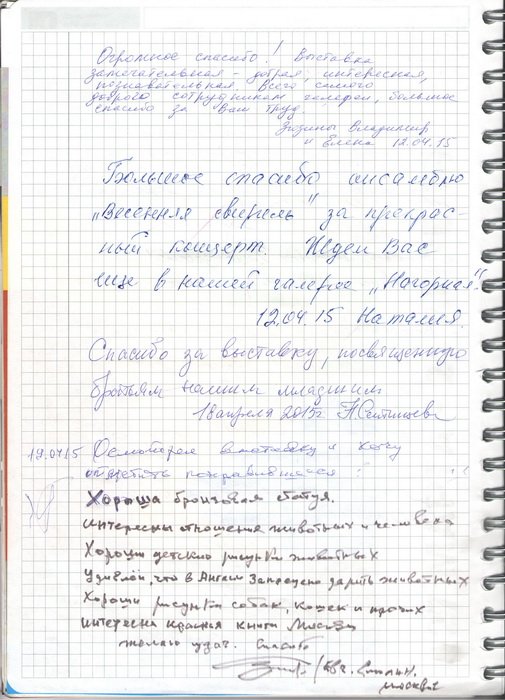 Огромное спасибо! Выставка
замечательная - добрая, интересная,
познавательная. Всего самого
доброго сотрудникам галереи, большое
спасибо за Ваш труд.
Владимир
и Елена 12.04.15
Большое спасибо ансамблю
„Весенняя свирель" за прекрас-
ный концерт. Ждем Вас
еще в нашей галерее „Нагорная".
12.04.15 Наталия.
Спасибо за выставку, посвященную
братьям нашим младшим
18 апреля 2015г
19.04.15 Осмотрел выставку и хочу
отметить понравившееся:
Хороша бронзовая статуя.
Интересны отношения животных и человека
Хороши детские рисунки животных
Удивлён, что в Англии запрещено дарить животных
Хороши рисунки собак, кошек и прочих
Интересна красная книга Москвы
желаю удач. Спасибо
москвич